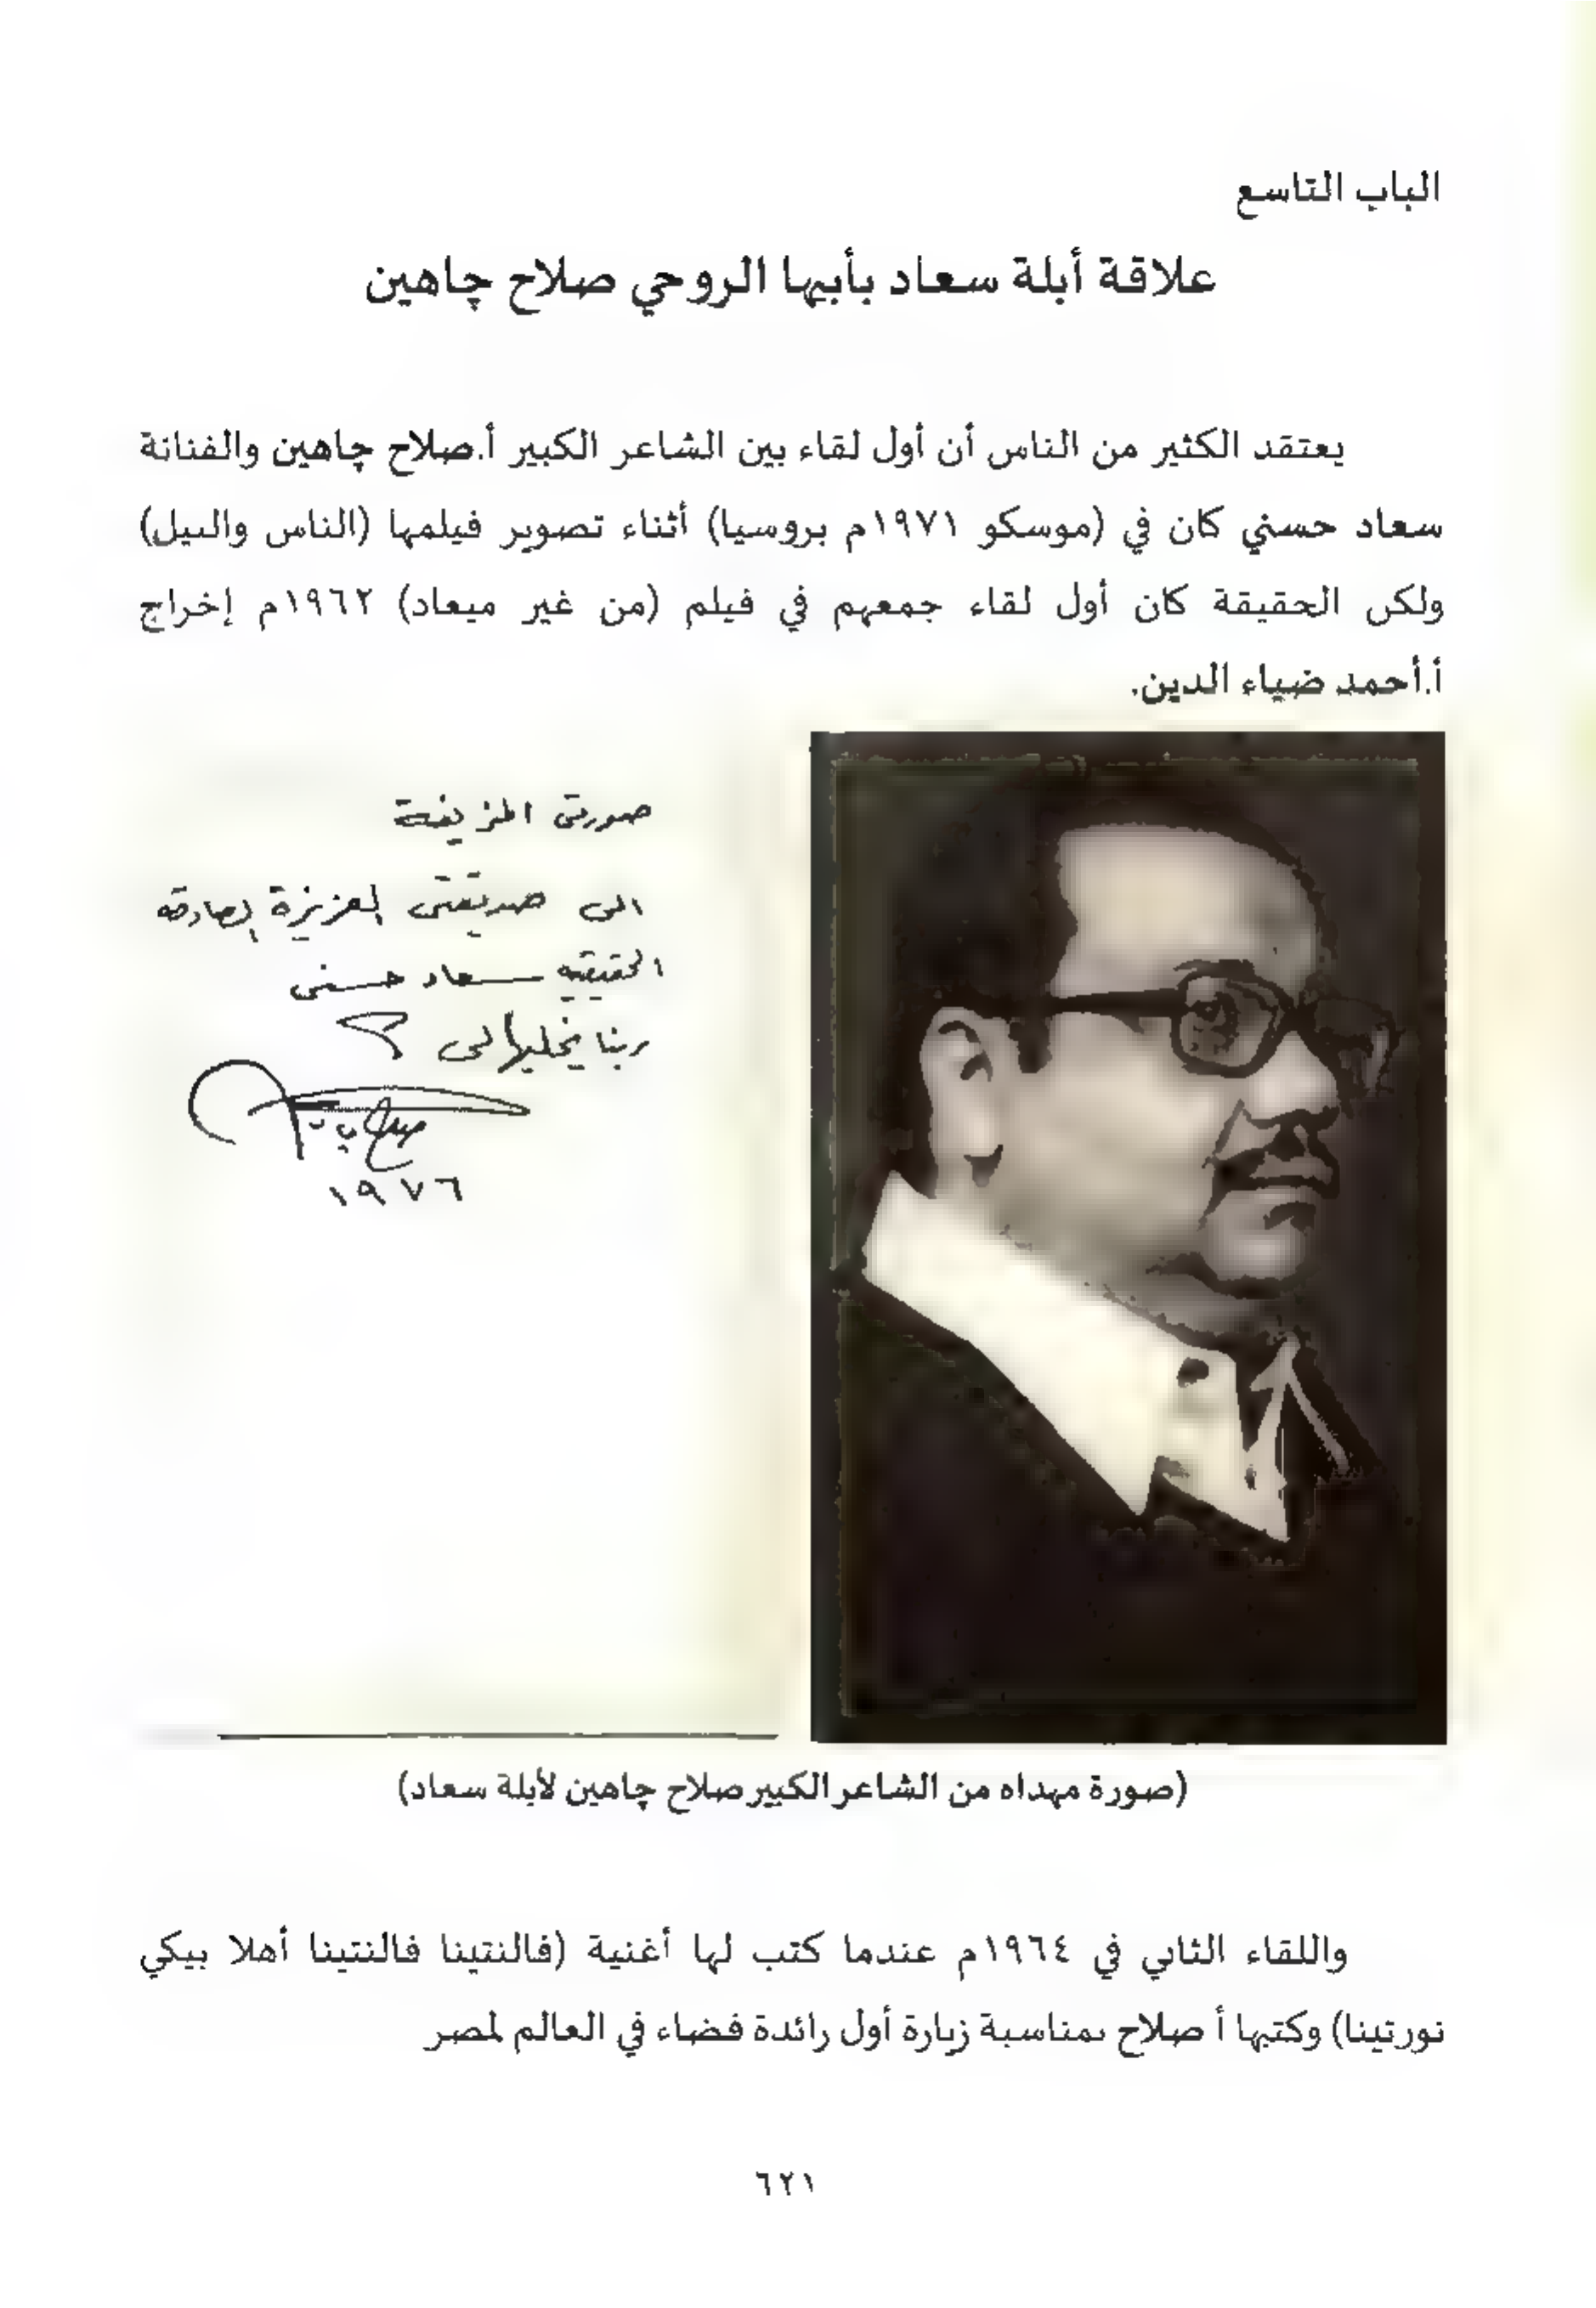 الباب التاسع
علاقة أبلة سعاد بأبيها الروحي صلاح چاهين
يعتقد الكثير من الناس أن أول لقاء بين الشاعر الكبير أ.صلاح چاهين والفنانة
سعاد حسني كان في (موسكو ١٩٧١م بروسيا) أثناء تصوير فيلمها (الناس والنيل)
ولكن الحقيقة كان أول لقاء جمعهم في فيلم (من غير ميعاد) ١٩٦٢م إخراج
أ.أحمد ضياء الدين.
صورتى المزيفة
الى صديقتى العزيزة الصادقه
الحقيقيه سعاد حسنى
ربنا يخليها لى
صلاح
١٩٧٦
(صورة مهداه من الشاعر الكبير صلاح چاهين لأبلة سعاد)
واللقاء الثاني في ١٩٦٤م عندما كتب لها أغنية (فالنتينا فالنتينا أهلا بيكي
نورتينا) وكتبها أ صلاح بمناسبة زيارة أول رائدة فضاء في العالم لمصر
٦٢١